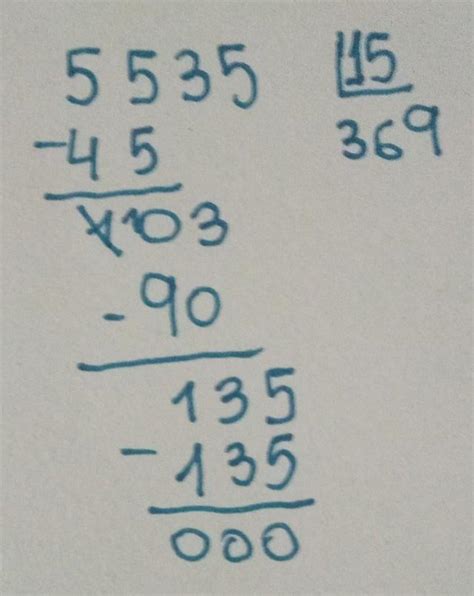 5535 15
-45 369
103
-90
135
-135
000